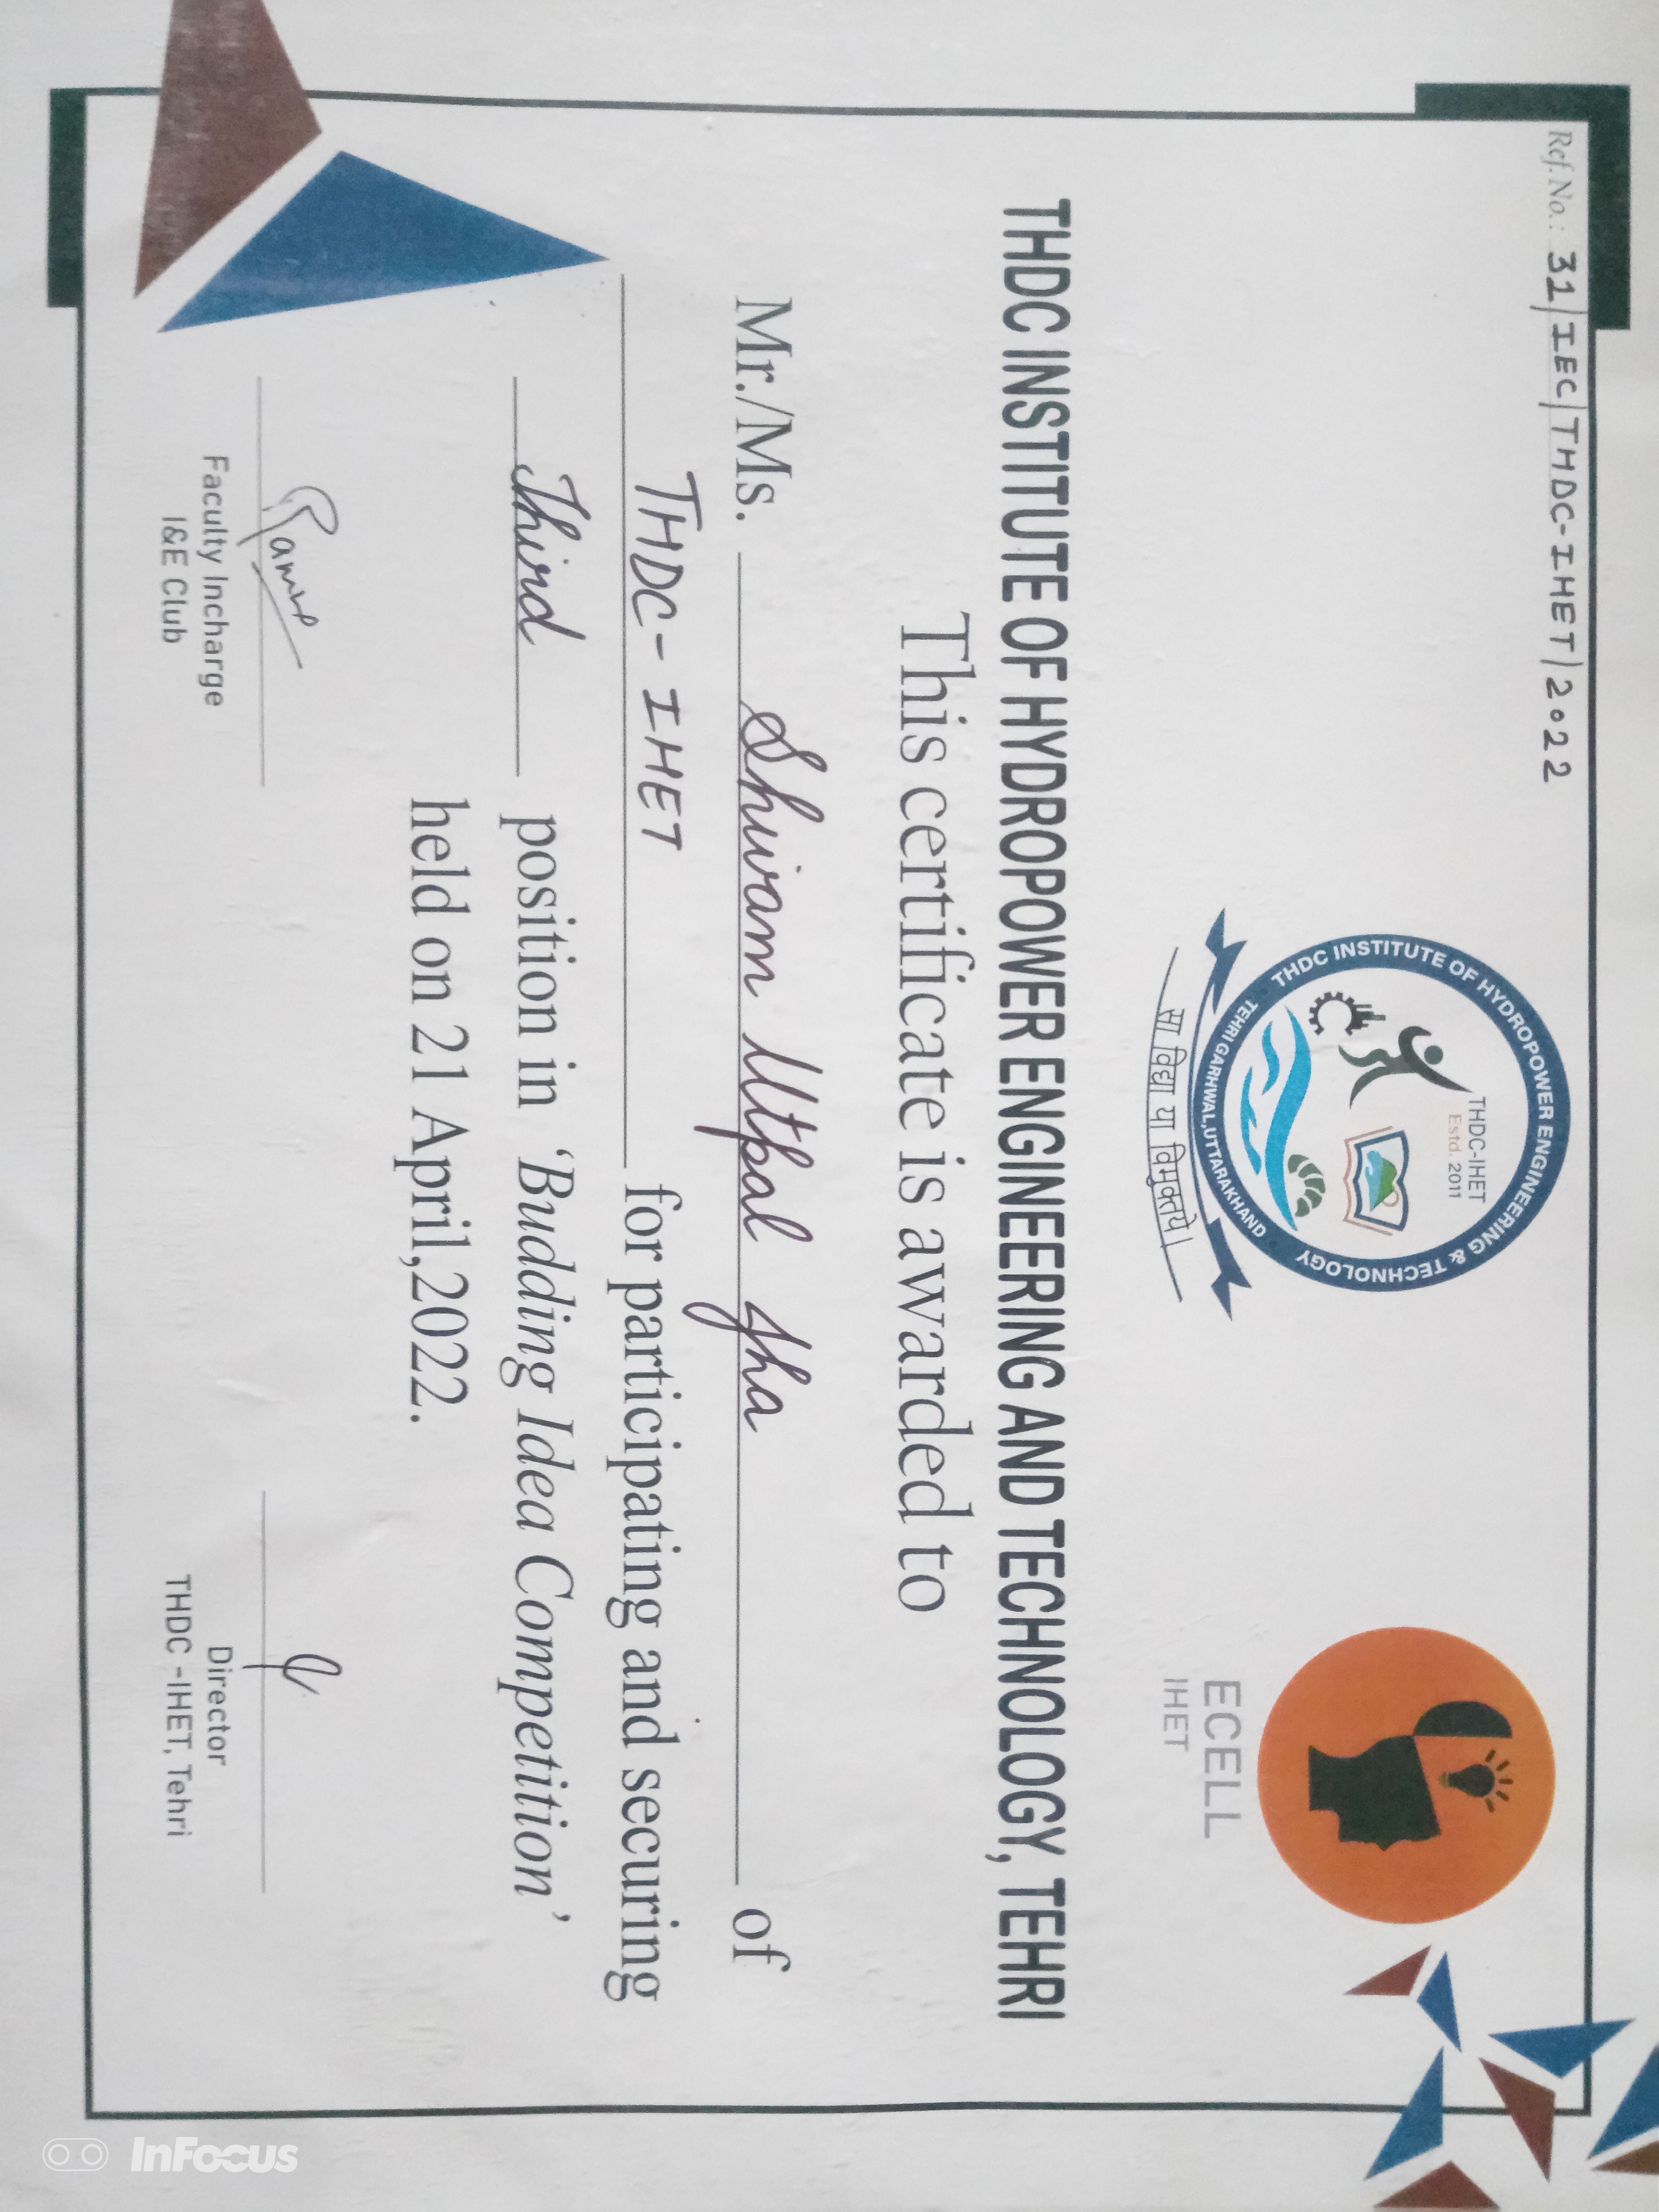 Ref. No.: 31/IEC/THDC-IHET/2022
THDC INSTITUTE OF HYDROPOWER ENGINEERING & TECHNOLOGY
THDC-IHET
Estd. 2011
TEHRI GARHWAL,UTTARAKHAND
सा विद्या या विमुक्तये।
ECELL
IHET
THDC INSTITUTE OF HYDROPOWER ENGINEERING AND TECHNOLOGY, TEHRI
This certificate is awarded to
Mr./Ms. Shivam Utpal Jha of
THDC-IHET for participating and securing
Third position in ‘Budding Idea Competition’
held on 21 April,2022.
Faculty Incharge
I&E Club
Director
THDC -IHET, Tehri
InFocus